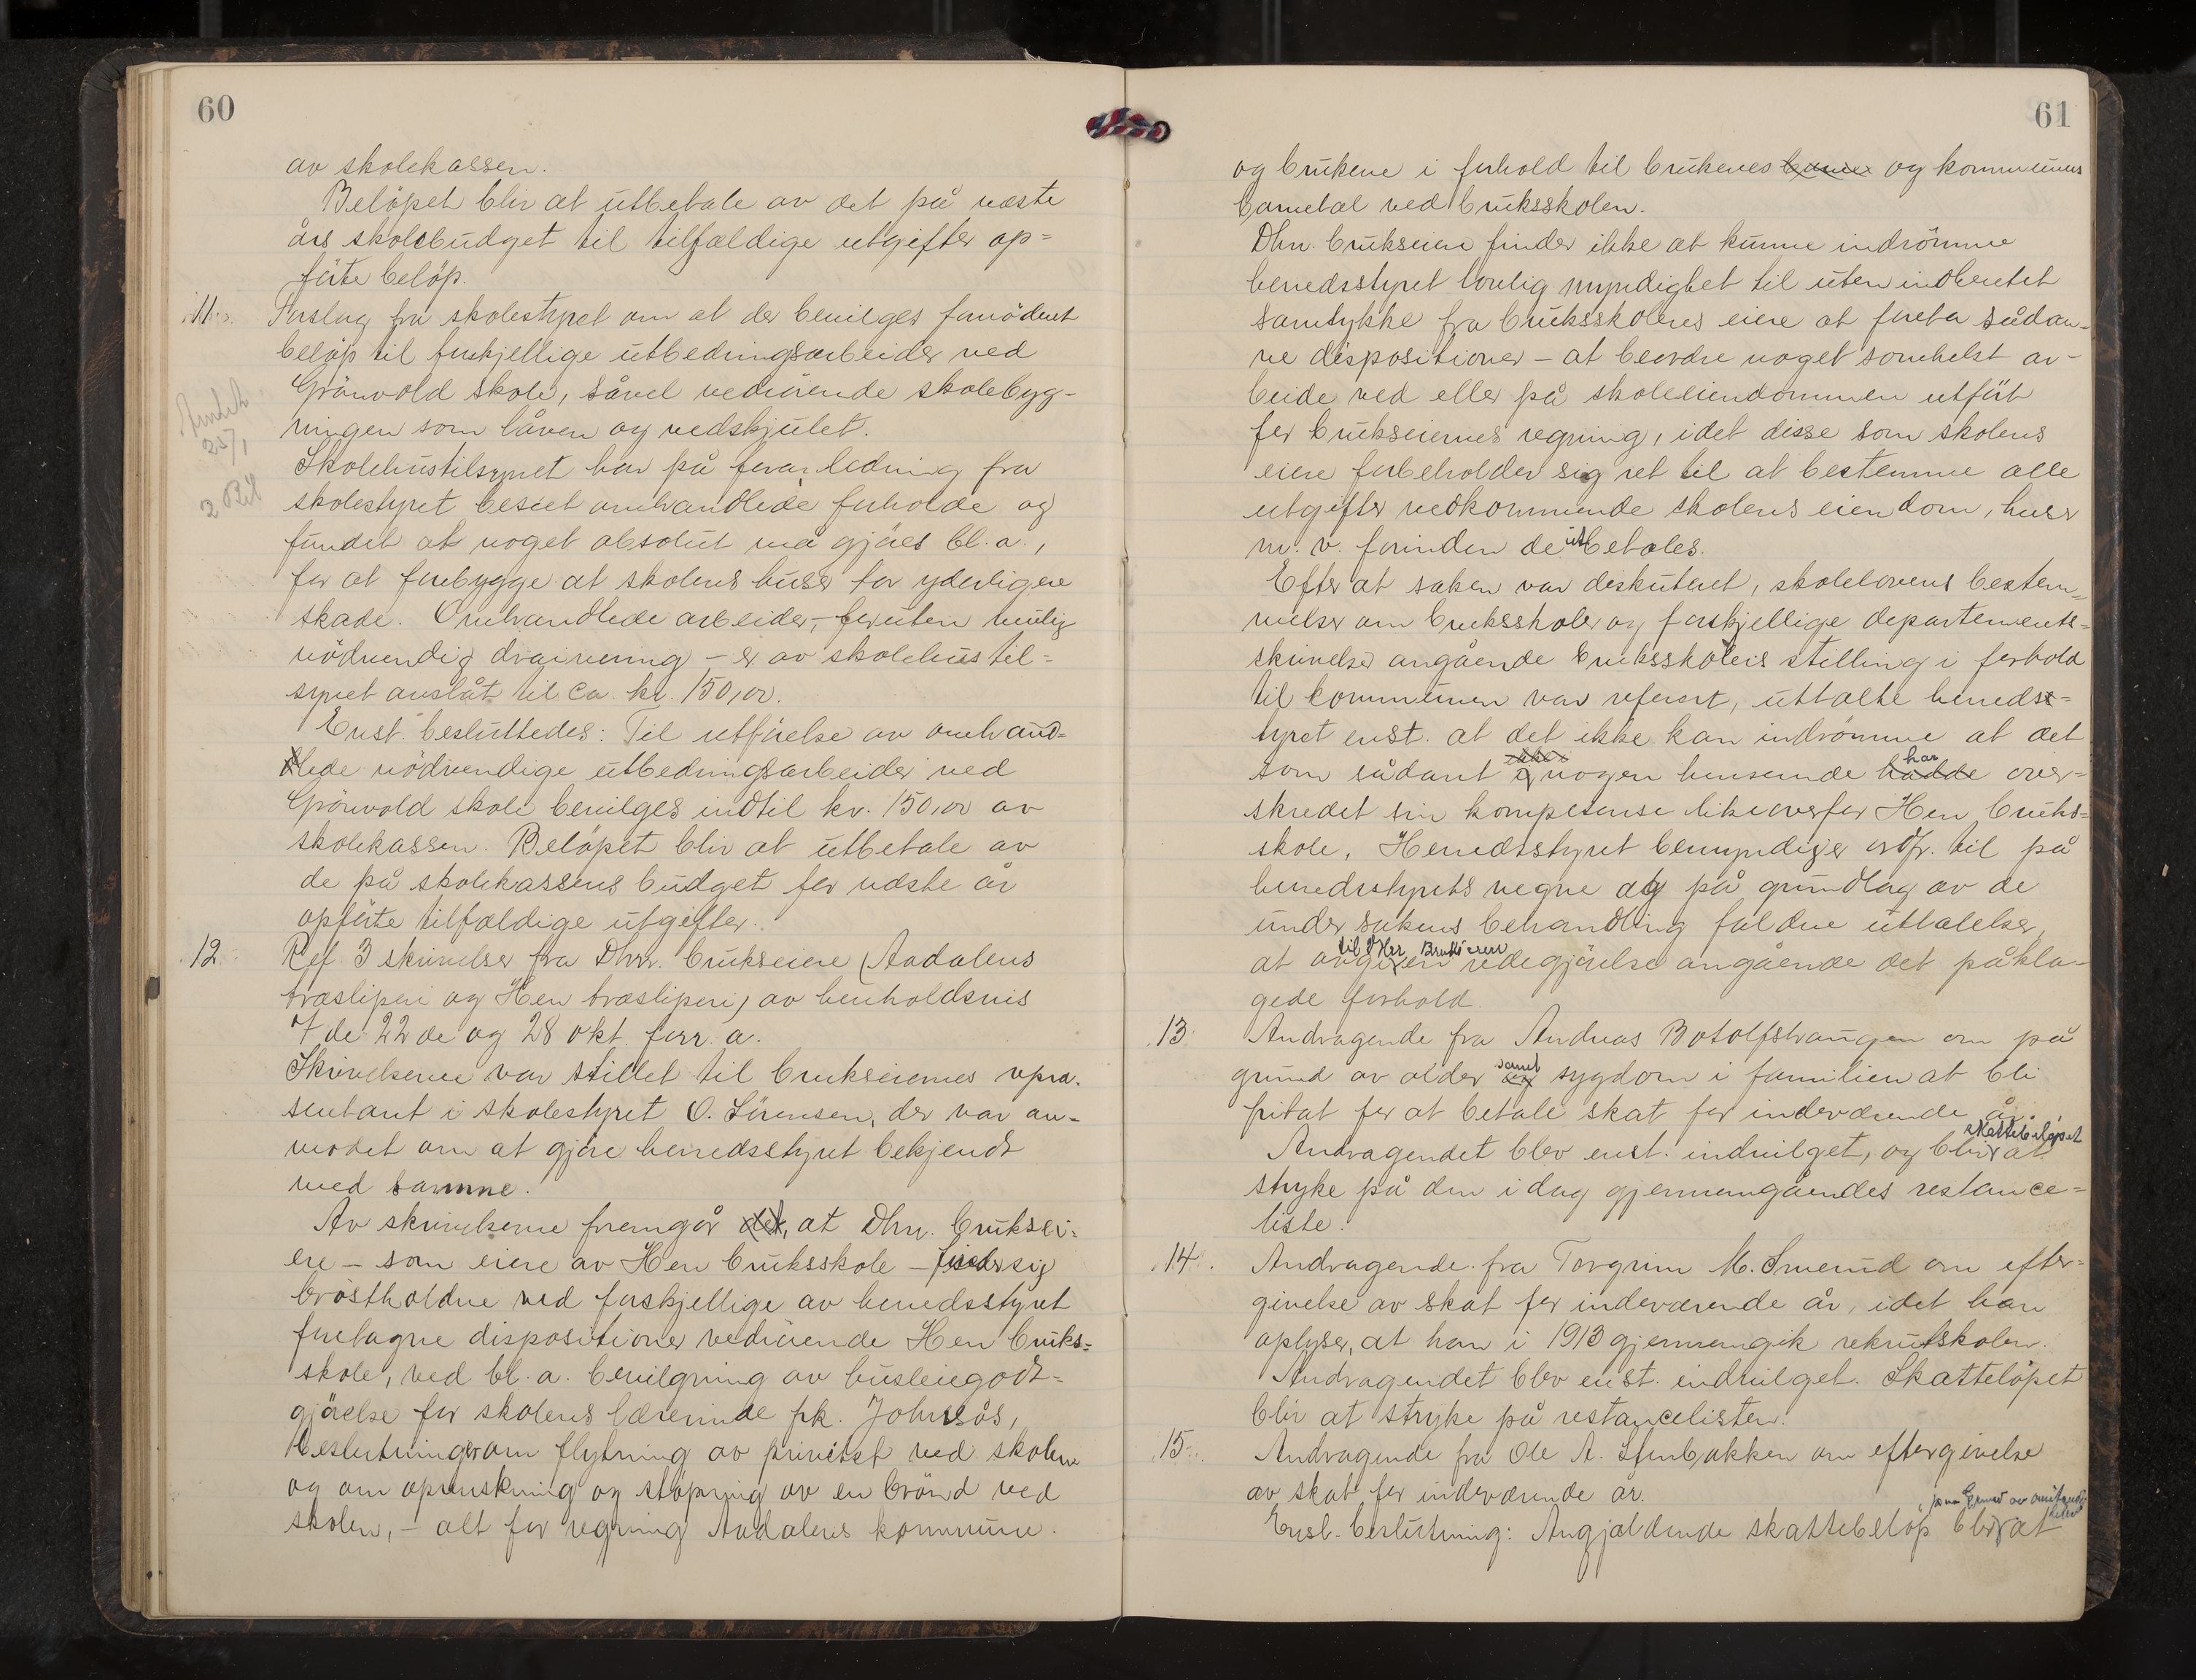 60
av skolekassen.
Beløpet blir at utbetale av det på næste
års skolebudget til tilfældige utgifter op=
førte beløp.
11. Forslag fra skolestyret om at der bevilges fornödent
beløp til forskjellige utbedringsarbeider ved
Grönvold skole, såvel vedrörende skolebyg-
ningen som låven og vedskjulet.
25/1
Skolehustilsynet har på foranledning fra
skolestyret beseet omhandlede forholde og
fundet at noget absolut må gjöres bl. a.,
for at forebygge at skolens huser tar yderligere
skade. Omhandlede arbeider, - foruten mulig
nödvendig drainering - er av skolehustil=
synet anslåt til ca. kr. 150,00.
Enst. besluttedes: Til utförelse av omhand=
lede nödvendige utbedringsarbeider ved
Grönvold skole bevilges indtil kr. 150,00 av
skolekassen. Belöpet blir at utbetale av
de på skolekassens budget for næste år
opförte tilfældige utgifter.
12. Ref. 3 skrivelser fra Dhrr. brukseiere (Aadalens
træsliperi og Hen træsliperi) av henholdsvis
7de 22de og 28 okt. forr. a.
Skrivelserne var stillet til brukseiernes repræ-
sentant i skolestyret O. Sörensen, der var an-
modet om at gjöre herredsstyret bekjendt
med samme.
Av skrivelserne fremgår det, at Dhrr. bruksei=
ere - som eiere av Hen bruksskole - finder sig
bröstholdne ved forskjellige av herredsstyret
foretagne dispositioner vedrörende Hen bruks=
skole, ved bl. a. bevilgning av husleiegodt=
gjörelse for skolens lærerinde frk. Johnsås,
beslutninger om flytning av privetet ved skolen
og om oprenskning og stöpning av en brönd ved
skolen, - alt for regning Aadalens kommune.
61
og brukene i forhold til brukenes og kommunens
barnetal ved bruksskolen.
Dhrr. brukseiere finder ikke at kunne indrömme
herredsstyret lovlig myndighet til uten indhentet
samtykke fra bruksskolens eiere at foreta sådan=
ne dispositioner - at beordre noget somhelst ar-
beide ved eller på skoleeiendommen utfört
for brukseiernes regning, idet disse som skolens
eiere forbeholder sig ret til at bestemme alle
utgifter vedkommende skolens eiendom, huser
m. v. forinden de utbetales.
Efter at saken var deskuteret, skolelovens bestem=
melser om bruksskoler og forskjellige departements=
skrivelser angående bruksskolens stilling i forhold
til kommunen var referert, uttalte herreds=
tyret enst. at det ikke kan indrömme at det
som sådant i nogen henseende hadde har over=
skredet sin kompetense likeoverfor Hen bruks=
skole. Herredsstyret bemyndiger ordf. til på
herredsstyrets vegne og på grundlag av de
under sakens behandling faldne uttalelser,
at avgi til D'Hrr Brukseiere en redegjörelse angående det påkla-
gede forhold.
13. Andragende fra Andreas Botolfshaugen om på
grund av alder samt sygdom i familien at bli
fritat for at betale skat for indeværende år.
Andragendet blev enst. indvilget, og blir skattebelöpet at
stryke på den idag gjennemgåendes restance=
liste.
14. Andragende fra Torgrim M. Smerud om efter=
givelse av skat for indeværende år, idet han
oplyser, at han i 1913 gjennemgik rekrutskolen.
Andragendet blev enst. indvilget. Skattelöpet
blir at stryke på restancelisten.
15. Andragende fra Ole A. Stenbakken om eftergivelse
av skat for indeværende år.
Enst. beslutning: Angjældende skattebelöp blir at